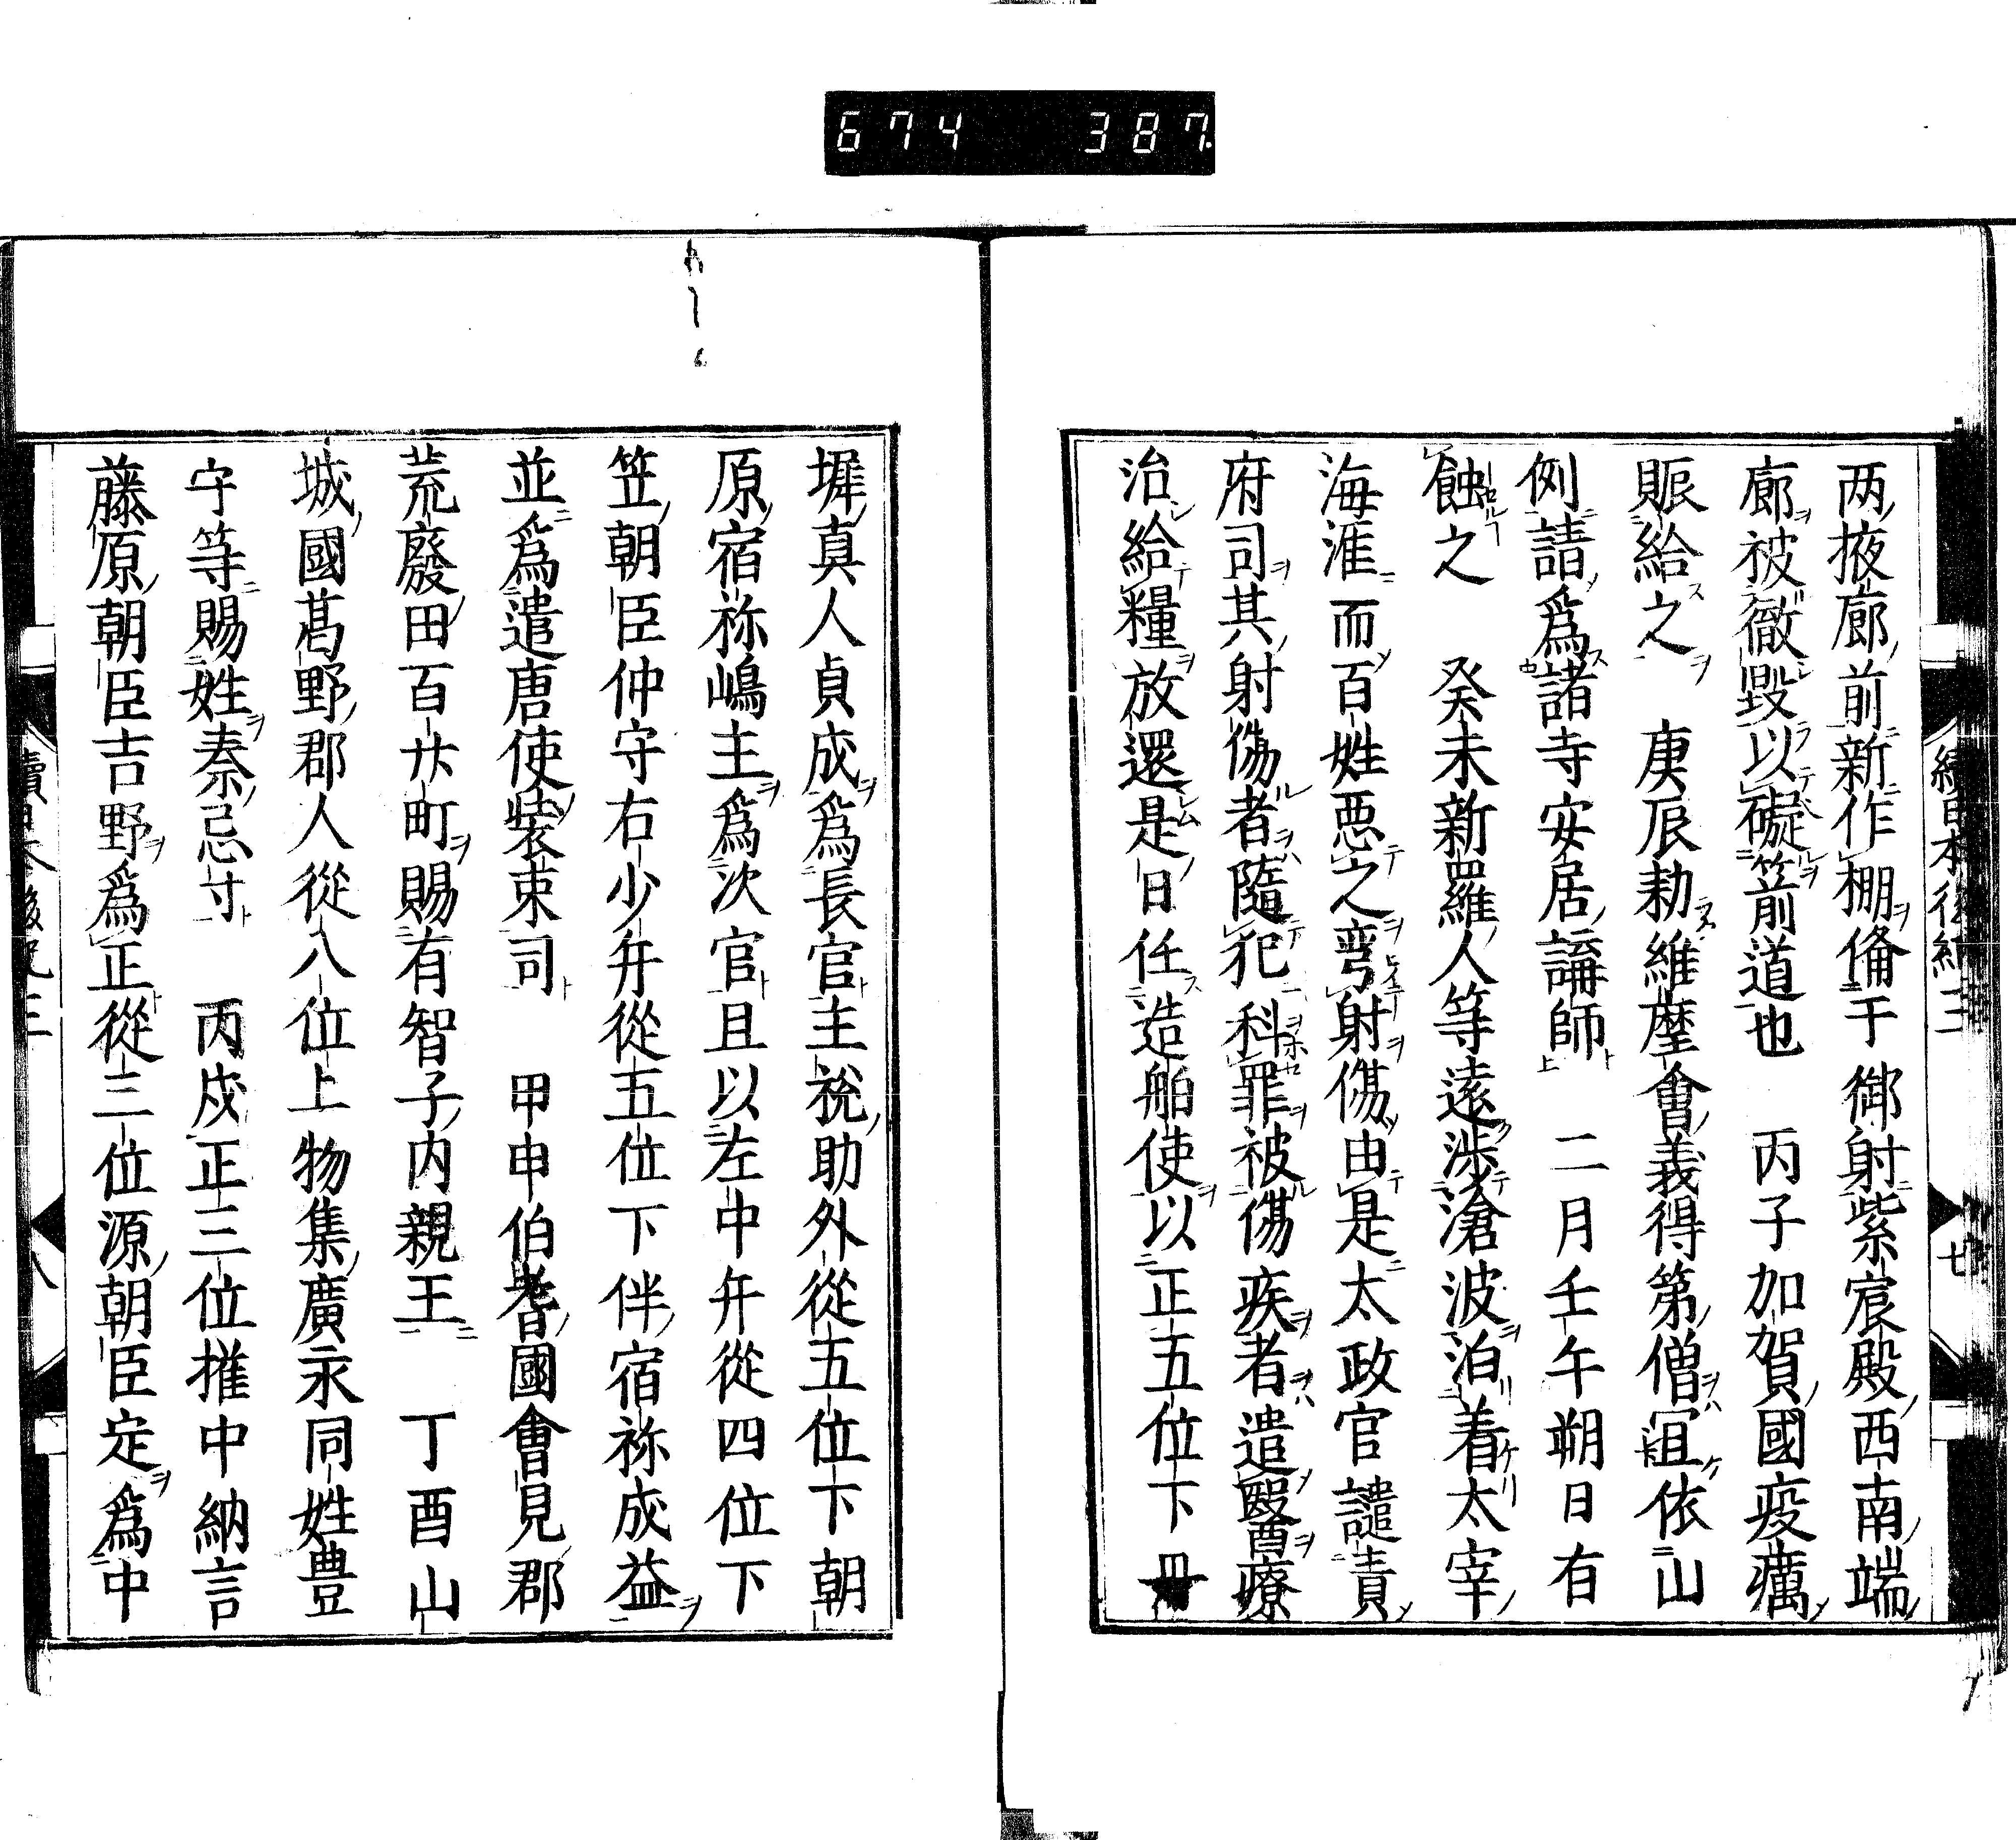 674 387
两掖廊前新作棚俻于御射紫宸殿西南端
廊被徹毀以礙箭道也 丙子加賀國疫癘
賑給之 庚辰勅維摩會義得第僧冝依山
例請爲諸寺安居講師 二月壬午朔日有
蝕之 癸未新羅人等遠渉滄波泊着太宰
海涯而百姓悪之彎射傷由是太政官譴責
府司其射傷者隨犯科罪被傷疾者遣毉療
治給糧放還是日任造舶使以正五位下丹
墀真人貞成爲長官主税助外從五位下朝
原宿祢嶋主爲次官且以左中弁從四位下
笠朝臣仲守右少弁從五位下伴宿祢成益
並爲遣唐使裝束司 甲申伯耆國會見郡
荒廢田百廿町賜有智子内親王 丁酉山
城國葛野郡人從八位上物集廣永同姓豊
守等賜姓秦忌寸 丙戌正三位權中納言
藤原朝臣吉野爲正從三位源朝臣定爲中